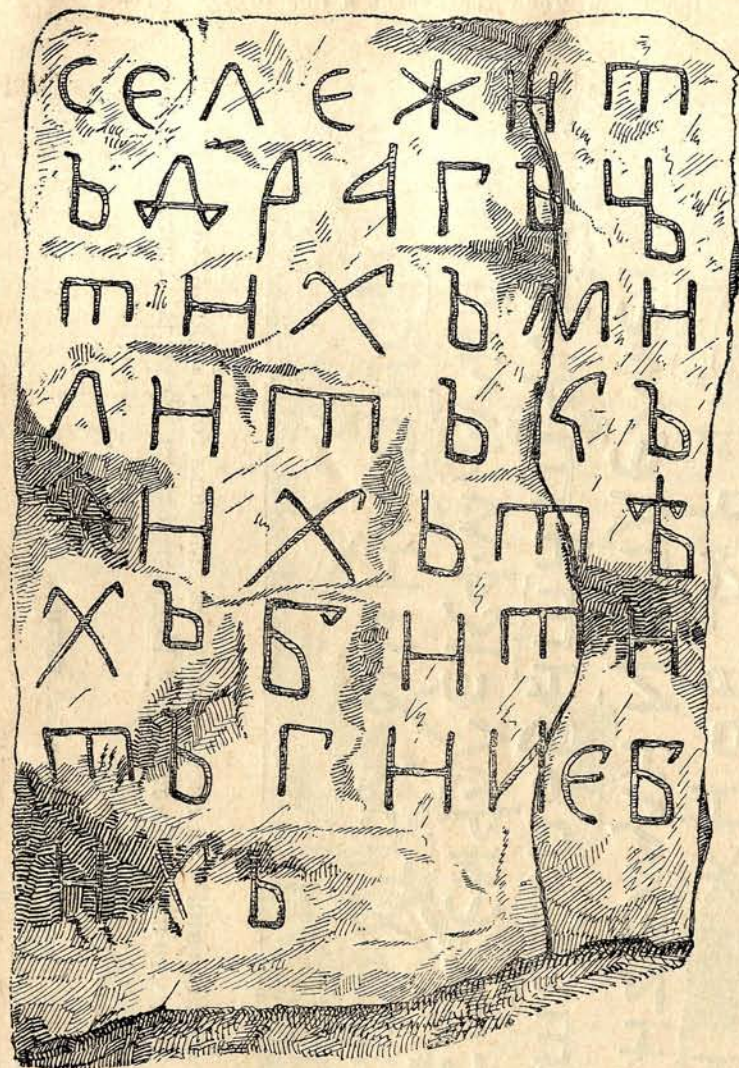 СЕЛЕЖИТ
ЪДРАГЪЦЬ
ТИХЬМИ
ЛИТЬСЪ
ЖИХЬТѢ
ХЪБИТИ
ТЪГИНЕБ
ИХЪ